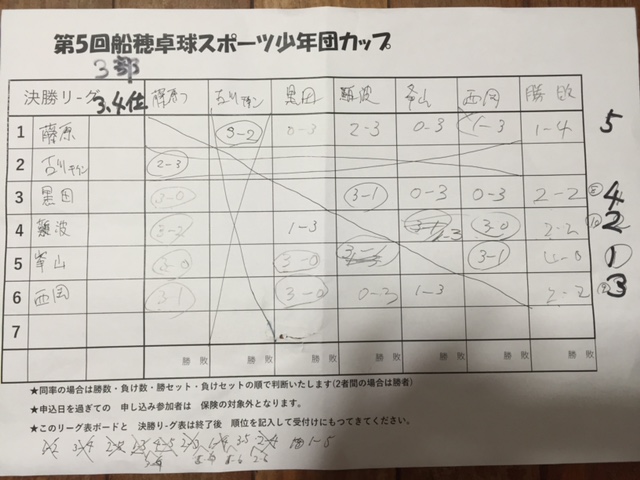 第5回船穂卓球スポーツ少年団カップ
3部
決勝リーグ 3.4位 藤原 黒田 難波 峯山 西岡 勝敗
1 藤原 3-2 0-3 2-3 0-3 1-3 1-4 5
2 2-3
3 黒田 3-0 3-1 0-3 0-3 2-2 4
4 難波 3-2 1-3 3-0 2-2 2
5 峯山 3-0 3-0 3-1 4-0 1
6 西岡 3-1 3-0 0-3 1-3 2-2 3
7
勝 敗 勝 敗 勝 敗 勝 敗 勝 敗 勝 敗 勝 敗
★同率の場合は勝数・負け数・勝セット・負けセットの順で判断いたします(2者間の場合は勝者)
★申込日を過ぎての 申し込み参加者は 保険の対象外となります。
★このリーグ表ボードと 決勝リーグ表は終了後 順位を記入して受付けにもってきてください。
3-4 4-5 3-5 2-4 1-5